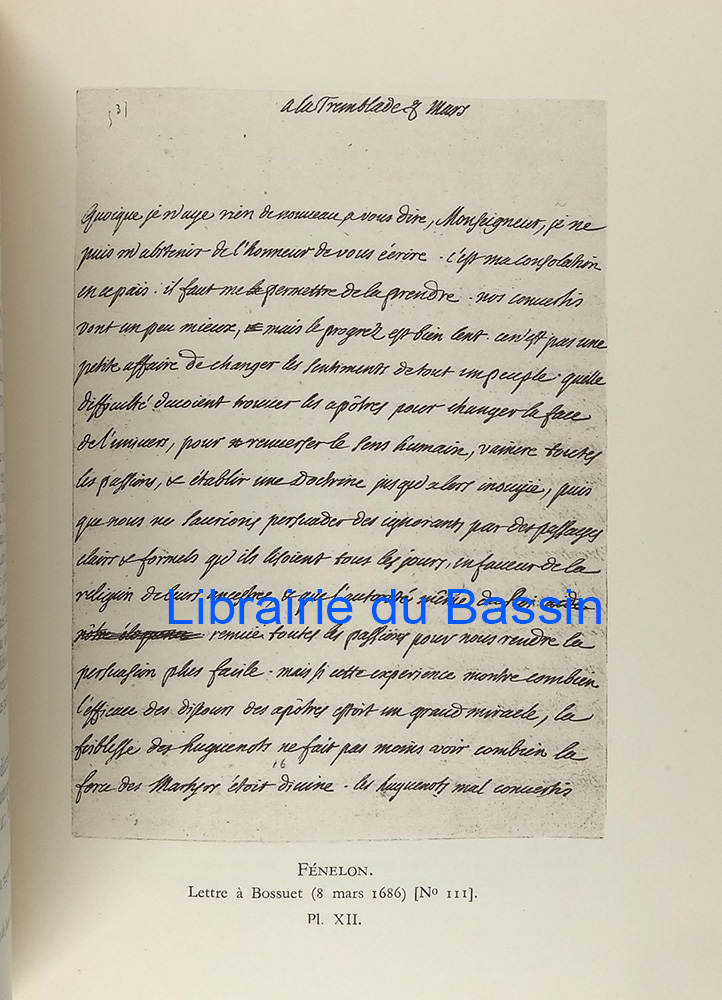 531
a la Tremblade 8 Mars
Quoique je n'aye rien de nouveau a vous dire, Monseigneur, je ne
puis m'abstenir de l'honneur de vous écrire. c'est ma consolation
en ce païs. il faut me permettre de la prendre. nos convertis
vont un peu mieux, mais le progrez est bien lent. ce n'est pas une
petite affaire de changer les sentiments de tout un peuple. quelle
difficulté devoient trouver les apôtres pour changer la face
de l'univers, pour renverser le sens humain, vaincre toutes
les passions, & établir une doctrine jusqu'alors inouyie, puis
que nous ne saurions persuader des ignorants par des passages
clairs & formels qu'ils lisoient tous les jours, en faveur de la
religion de leurs ancestres, & que l'autorité
Librairie du Bassin
remüe toutes les passions pour nous rendre la
persuasion plus facile. mais si cette experience montre combien
l'efficace des discours des apôtres estoit un grand miracle, la
foiblesse des huguenots ne fait pas moins voir combien la
force des Martyrs étoit divine. les huguenots mal convertis
16
FÉNELON.
Lettre à Bossuet (8 mars 1686) [No 111].
Pl. XII.